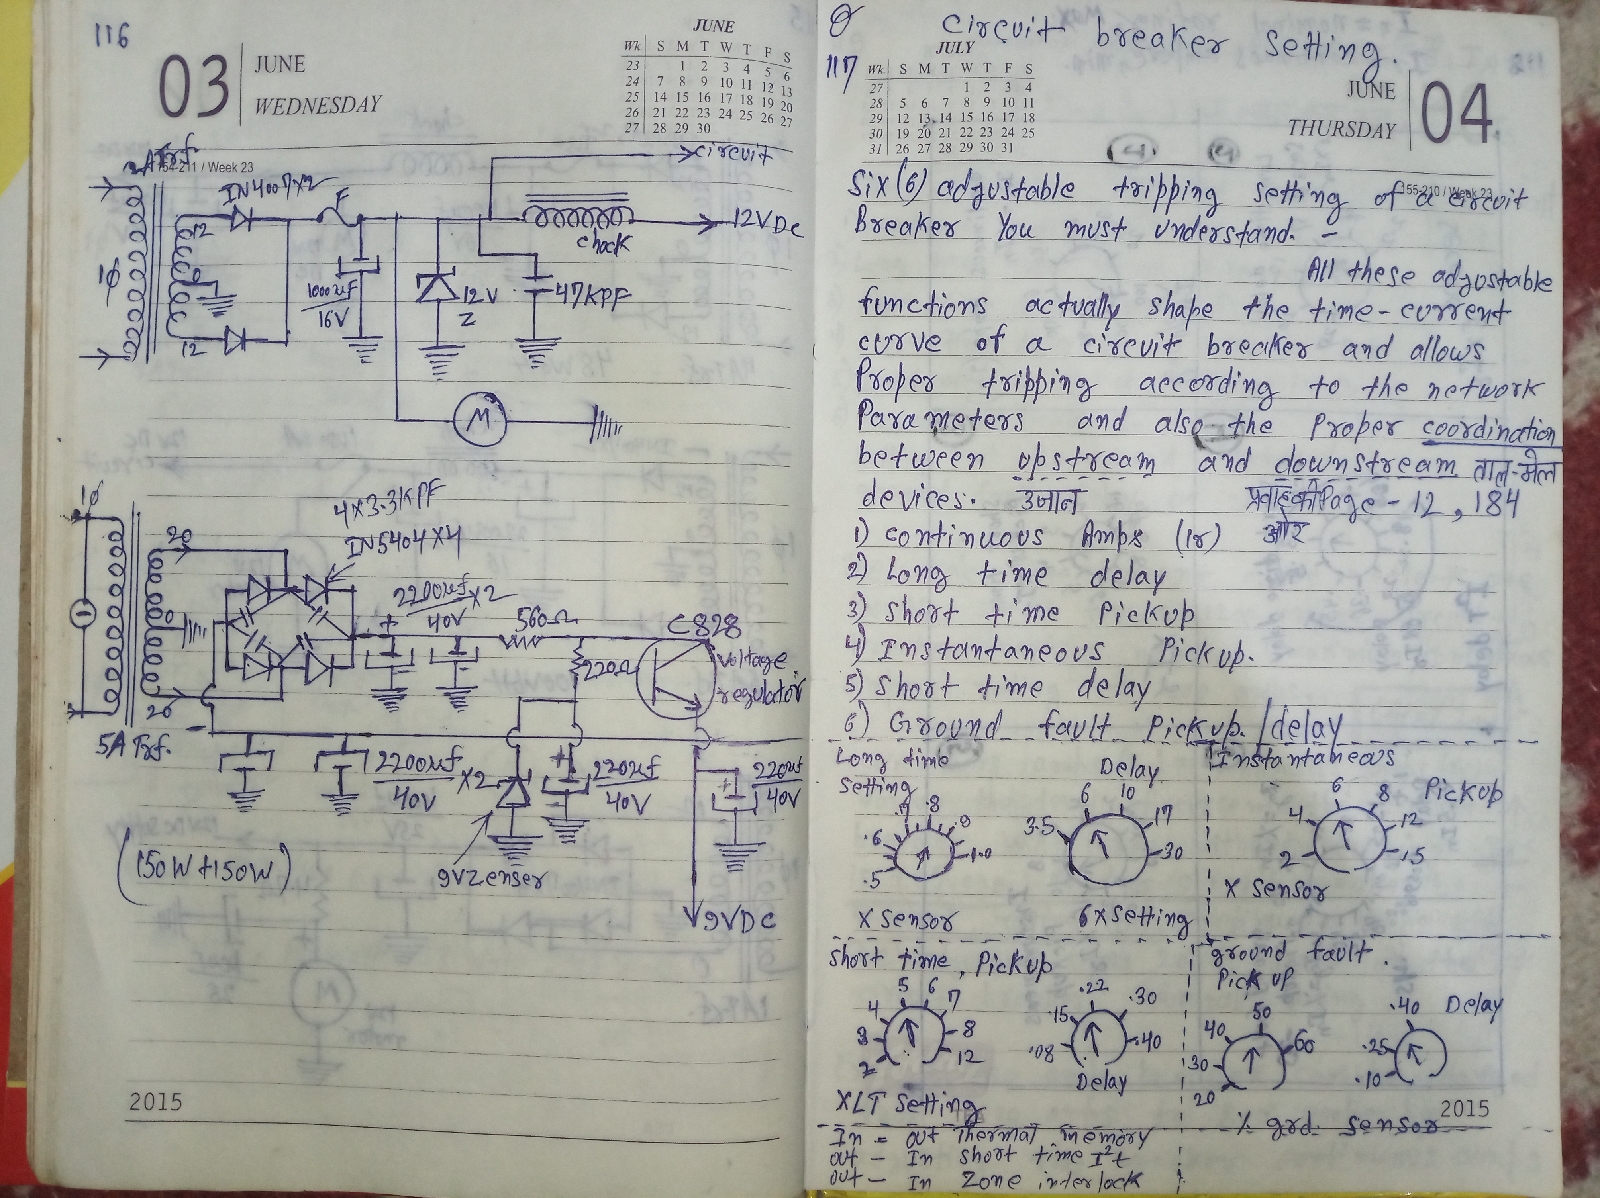 116
03
JUNE
WEDNESDAY
JUNE
Wk S M T W T F S
23 1 2 3 4 5 6
24 7 8 9 10 11 12 13
25 14 15 16 17 18 19 20
26 21 22 23 24 25 26 27
27 28 29 30
154-211 / Week 23
Trf.
IN4007X2
F
circuit
12
0
12
1ϕ
1000uf
16V
12V
Z
chock
47KPF
12V Dc
M
1ϕ
4X3.3KPF
IN5404X4
20
0
20
2200uf X2
40V
560Ω
220Ω
C828
voltage
regulator
5A Trf.
2200uf X2
40V
220uf
40V
220uf
40V
9VZenser
(150W+150W)
9VDC
2015
Circuit breaker Setting.
117
JULY
Wk S M T W T F S
27 1 2 3 4
28 5 6 7 8 9 10 11
29 12 13 14 15 16 17 18
30 19 20 21 22 23 24 25
31 26 27 28 29 30 31
JUNE
THURSDAY
04
155-210 / Week 23
Six(6) adjustable tripping setting of a circuit
Breaker You must understand. -
All these adjustable
functions actually shape the time-current
curve of a circuit breaker and allows
Proper tripping according to the network
Parameters and also the Proper coordination
between upstream and downstream ताल-मेल
devices. उजान प्रवाह की Page - 12, 184
ओर
1) continuous Amps (Ir)
2) Long time delay
3) short time Pickup
4) Instantaneous Pickup.
5) short time delay
6) Ground fault Pickup./delay
Long time
Setting
.5 .6 .7 .8 .9 1.0
X Sensor
Delay
3.5 6 10 17 30
6XSetting
Instantaneous
Pickup
2 4 6 8 12 15
X Sensor
short time, Pickup
2 3 4 5 6 7 8 12
XLT Setting
.08 .15 .22 .30 .40
Delay
ground fault.
Pick up
20 30 40 50 60
Delay
.10 .25 .40
% grd. sensor
In = out Thermal memory
out - In short time I²t
out - In Zone interlock
2015